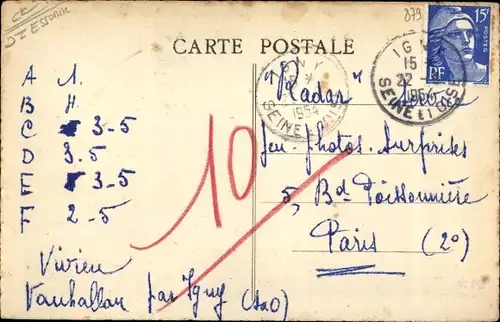 S et Essonne
879
CARTE POSTALE
15F
POSTES
RF
IGNY
15
22
1954
SEINE ET OISE
1954
SEINE
"Radar"
Jeu-Photos-Surprises
5, Bd Poissonnière
Paris (2º)
A 1.
B H.
C 3-5
D 3.5
E 3-5
F 2-5
10
Vivien
Vauhallan par Igny (S&O)